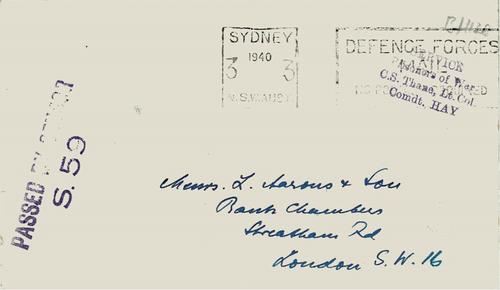 B/1132
SYDNEY
1940
3 3
N.S.W. AUST
DEFENCE FORCES
MAIL
NO POSTAGE REQUIRED
SERVICE
Prisoners of War
C.S. Thane, Lt. Col.
Comdt. HAY
PASSED BY CENSOR
S. 59
Messrs. L. Aarons & Son
Bank Chambers
Streatham Rd
London S.W. 16